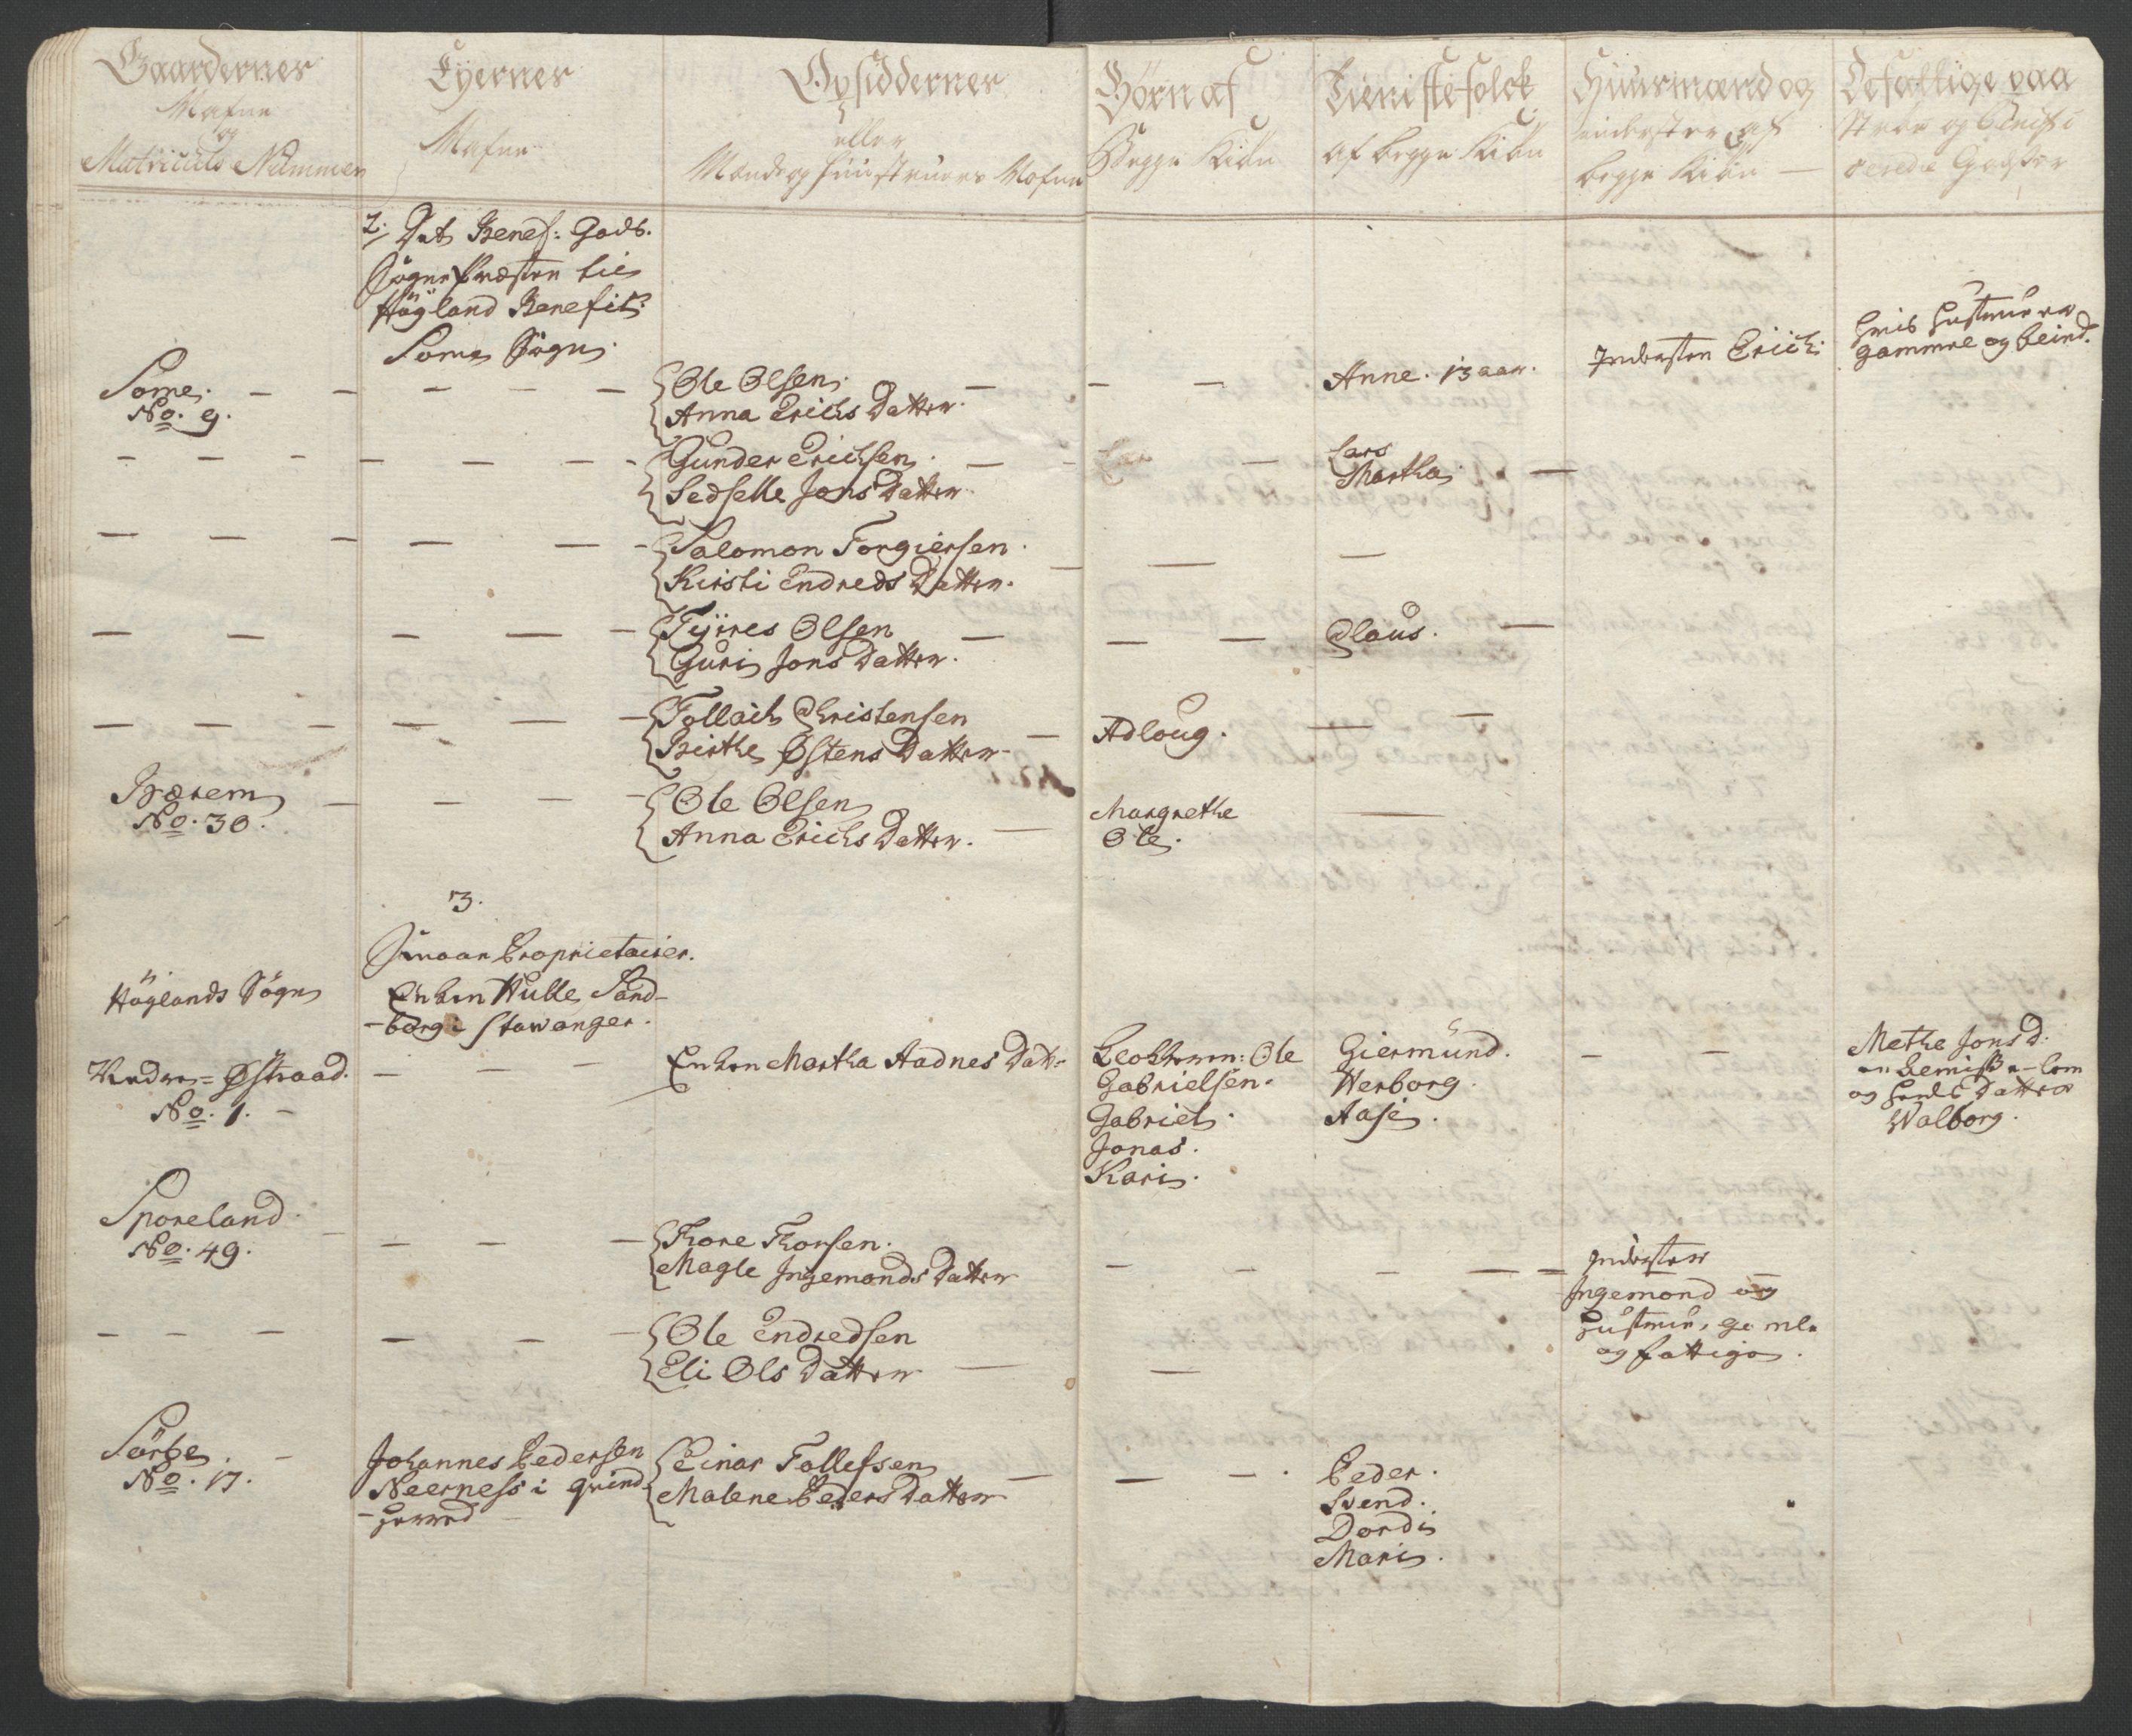 Gaardernes
Nafne
og
Matricul Nummer
Eyernes
Nafne
Opsiddernes
eller
Mands og Huustruers Nafne
Börn af
Begge Kiön
Tieniste folck
af begge Kiön
Huusmænd og
inderster af
begge Kiön
De fattige paa
og
2. Det Benef: Gods.
Sogne Præsten til
Höyland Benefit:
Some Sogn.
Some.
No. 9.
Ole Olsen.
Anna Erichs Datter.
Anne. 13 aar.
Indersten Erich:
hvis hustrue er
gammel og blind.
Gunder Erichsen.
Sedselle Jons Datter.
Lars
Martha.
Salomon Torgiersen.
Kirsti Endreds Datter.
Tyires Olsen
Guri Jons Datter.
Claus.
Tollach Christensen
Birthe Østens Datter.
Adloug.
Bærem
No. 30.
Ole Olsen
Anna Erichs Datter.
Margrethe
Ole.
3.
Smaae Proprietairer.
Höylands Sogn
Enken Hulle Sand-
-borg i Stawanger.
Nedre = Østraad.
No. 1.
Enken Martha Aadnes Datt=
Ole
Gabrielsen.
Gabriel.
Jonas.
Kari.
Giermund.
Herborg.
Aase.
Methe Jons D.
og hendes Datter
Walborg.
Sporeland.
No. 49.
Thore Thorsen.
Magle Ingemonds Datter
Inderster
Ingemond og
Hustrue, gamle
og fattige.
Ole Endredsen
Eli Ols Datter
Sörbe.
No. 17.
Johannes Pedersen
Neerness i Qvind-
-herred
Einar Tollefsen
Malene Peders Datter
Peder.
Svend.
Dordi
Mari.